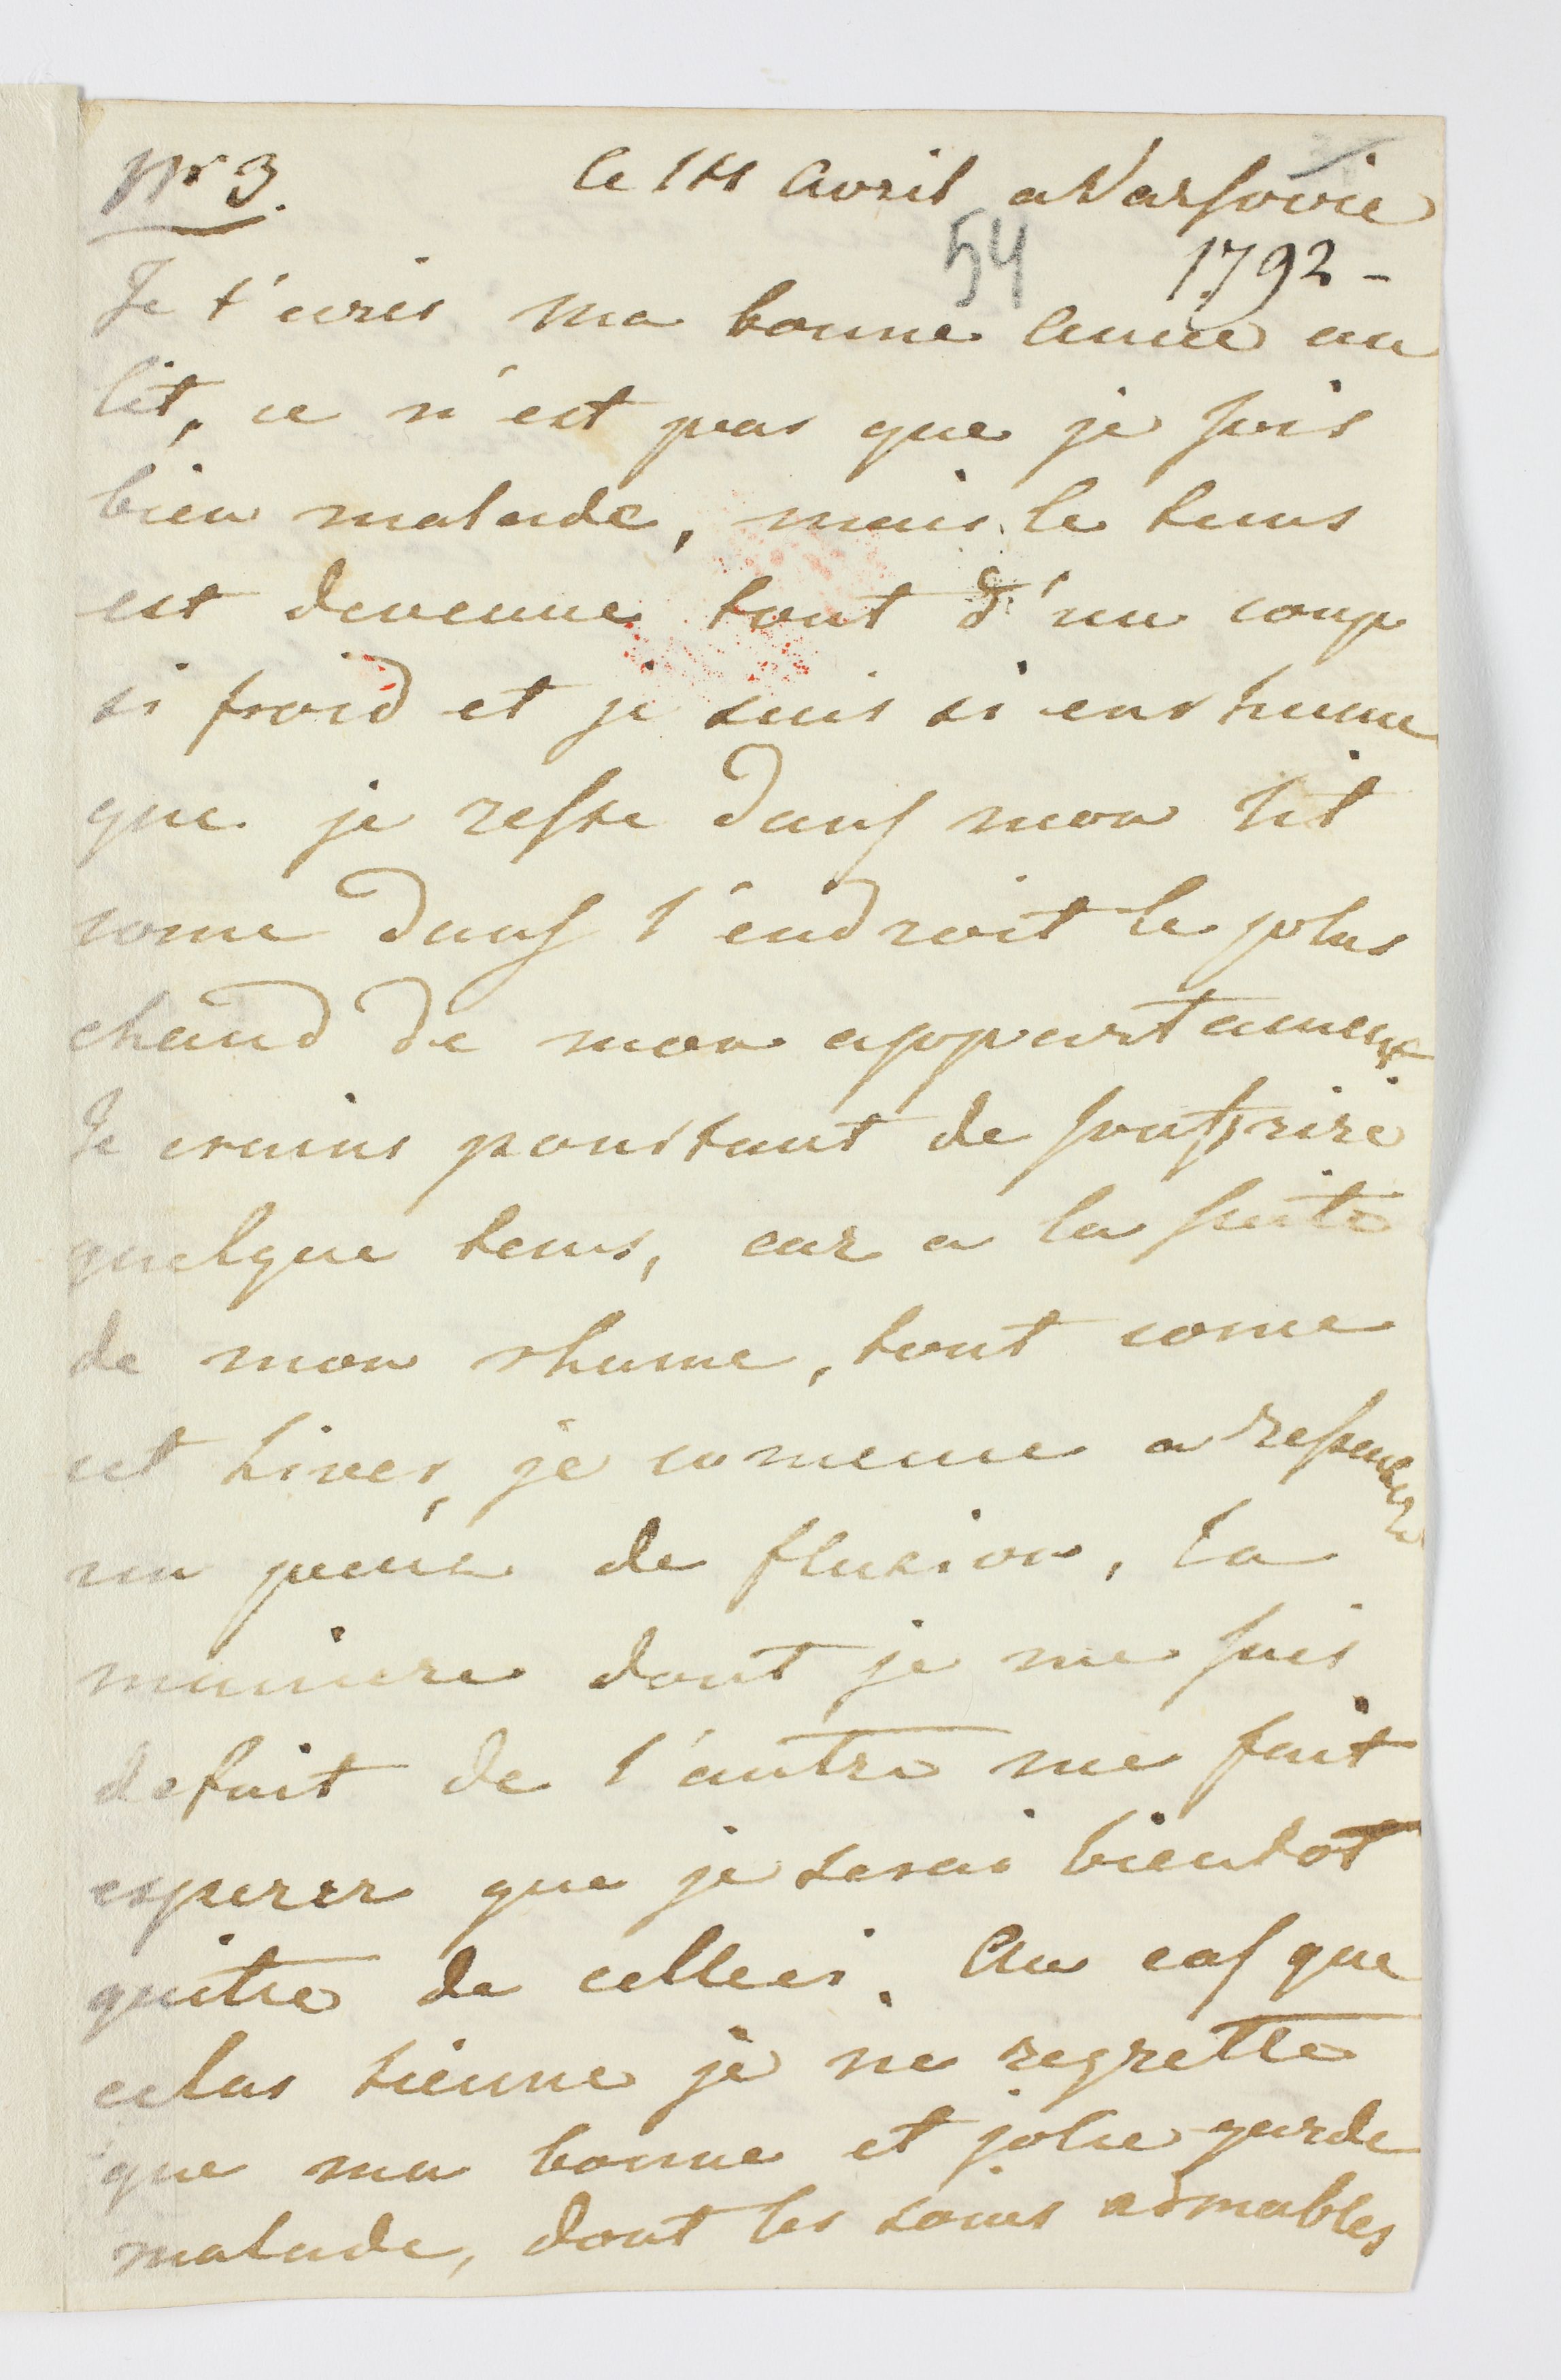 Nr 3. le 14 Avril a Varsovie
54 1792 -
Je t'ecris ma bonne Amie au
lit, ce n'est pas que je sois
bien malade, mais le tems
est devenue tout d'un coup
si froid et je suis si enrhumé
que je reste dans mon lit
come dans l'endroit le plus
chaud de mon appartement
Je crains pourtant de souffrire
quelque tems, car a la suite
de mon rhume, tout come
cet hiver, je comence a ressentir
un peu de fluxion, la
maniere dont je me suis
defait de l'autre me fait
esperer que je serai bientot
quitte de celleci. Au cas que
celas tienne je ne regrette
que ma bonne et jolie garde
malade, dont les soins aimables